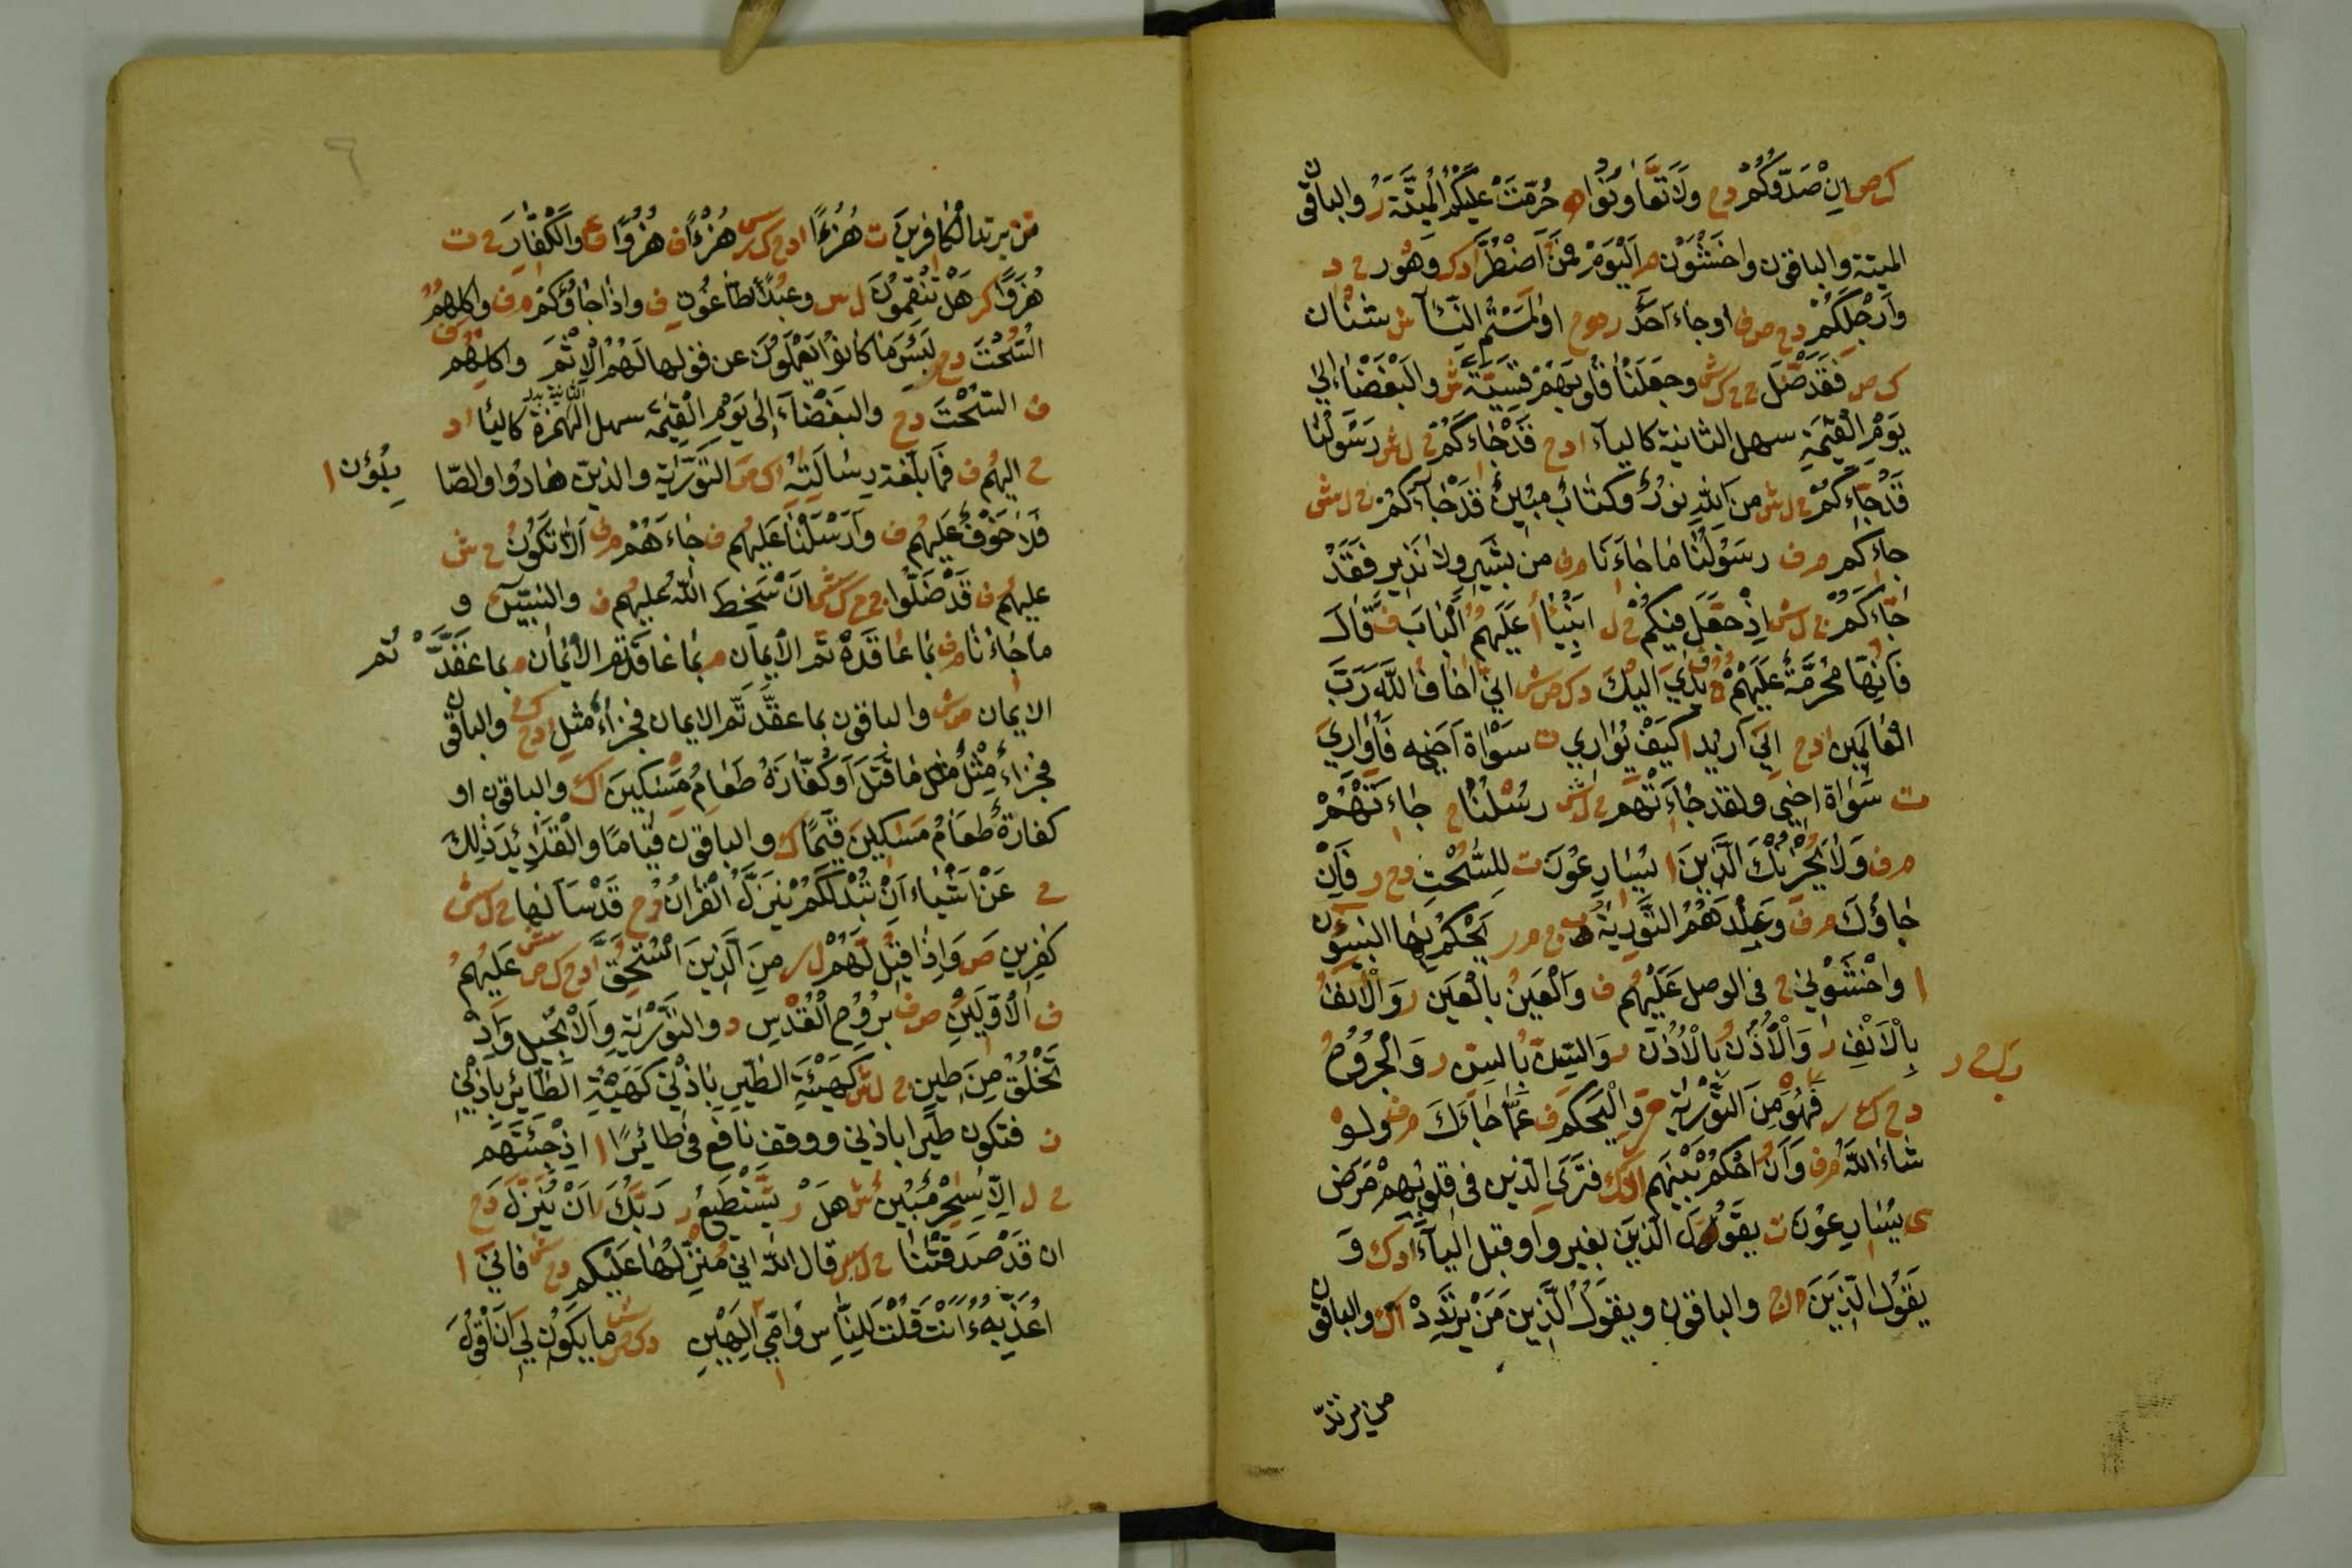 ك ص ان صدوكم دح ولا تعاونوا ه حرمت عليكم الميتة ر والباقون
الميتة والباقون واخشون م اليوم فمن اضطر ادك وهو ر ح د
وارجلكم دح ص ف او جاء احد او لمستم النساء ش شنان
ك ص فقد ضل وجعلنا قلوبهم قسية ش والبغضاء الى
يوم القيمة سهل الثانية كالياء ادح قد جاءكم ح ل ش رسولنا
قد جاءكم ح ل ش من الله نور وكتاب مبين قد جاءكم ح ل ش
جاءكم م ف رسولنا ما جاءنا م ف من بشير ولا نذير فقد
جاءكم ح ل ش اذ جعل فيكم ح ل انبيا ا عليهم الباب ف قال
فانها محرمة عليهم يدي اليك د ك ص ش اني اخاف الله رب
العالمين ادح اني اريد ا كيف يواري ت سواة اخيه فاواري
ت سواة اخي ولقد جاءتهم ح ل ش رسلنا ح جاءتهم
م ف ولا يحزنك الذين ا يسارعون ت للسحت دح ر فان
جاؤك م ف وعندهم التورية يحكم بها النبيون
ا واخشوني ح في الوصل عليهم ف والعين بالعين ر والانف
بالانف ر والاذن بالاذن ر والسن بالسن ر والجروح
دح ك ر فهو من التورية وليحكم ف عما جاءك م ف ولو
شاء الله م ف وان احكم بينهم فترى الذين في قلوبهم مرض
ى يسارعون ت يقول الذين بغير واو قبل الياء ادك و
يقول الذين والباقون ويقول الذين من يرتدد اك والباقون
من يرتد
من يرتد الكافرين ت هزءا هزءا ف هزوا ع والكفار ح ت
هزوا هل تنقمون ل س وعبد الطاغوت ف واذا جاؤكم م ف واكلهم
السحت دح لبئس ما كانوا يعملون عن قولهم الاثم واكلهم
ف السحت دح والبغضاء الى يوم القيمة سهل الهمزة الثانية كاليا اد
ح اليهم ف فما بلغت رسالته اك ص التورية والذين هادوا والصا
بئون ا
فلا خوف عليهم ف وارسلنا عليهم ف جاءهم م ف الا تكون ح ش
عليهم ف قد ضلوا ان سخط الله عليهم ف والنبيين و
ما جاءنا م ف بما عاقدتم الايمان م بما عاقدتم الايمان م بما عقد تم
الايمان م ش والباقون بما عقد تم الايمان فجزاء مثل ادح والباقون
فجزاء مثل مثل ما قتل او كفارة طعام مسكين اك والباقون او
كفارة طعام مساكين قيما ك والباقون قياما والقلائد ذلك
ح عن اشياء ان تبد لكم ينزل القران دح قد سالها ح ل ش
كفرين ص واذا قيل لهم ل ر من الذين استحق عليهم
ف الاولين ص ف بروح القدس د والتورية والانجيل واذ
تخلق من طين ح ل ش كهيئة الطير باذني كهيئة الطائر باذني
ن فتكون طيرا باذني ووقف نافع في طائرا ا اذ جئتهم
ح ل الا سحر مبين ش هل ر يستطيع ر ربك ان ينزل دح
ان قد صدقتنا ح ل س قال الله اني منزلها عليكم دح فاني ا
اعذبه ءانت قلت للناس وامي الهين د ك ص ش ما يكون لي ان اقول